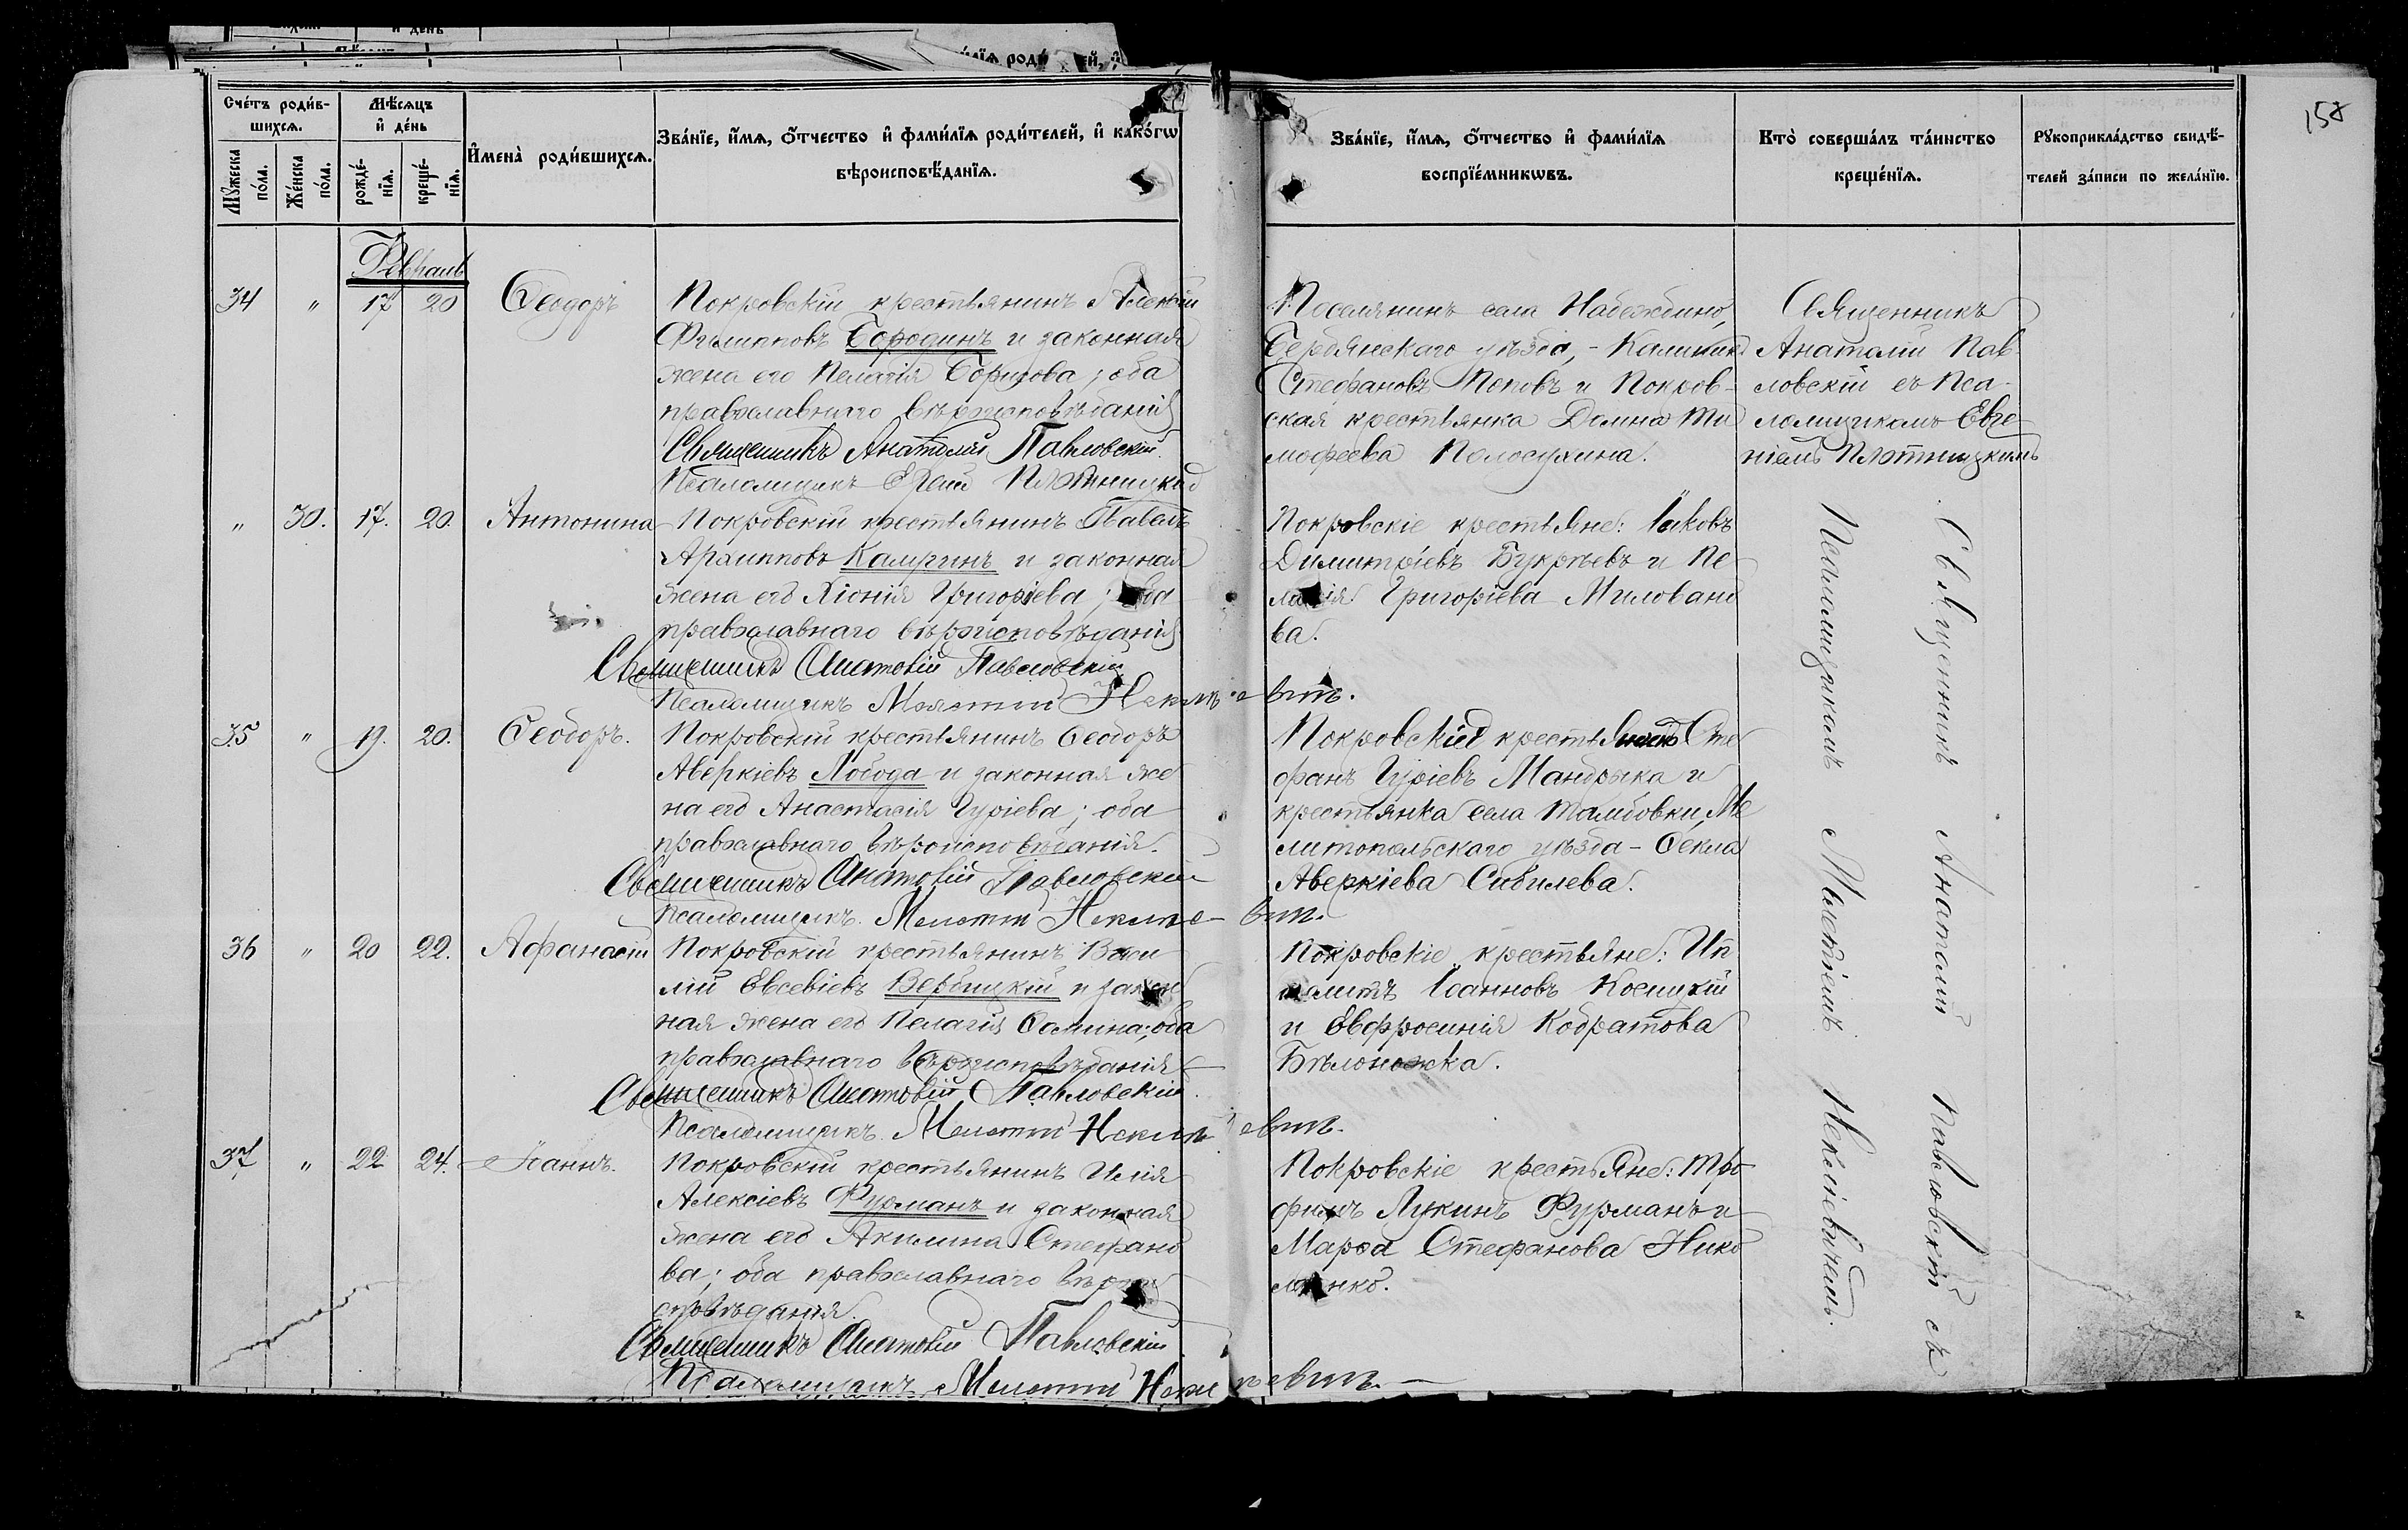 158
Счéтъ роди́в-
шихсѧ.
Мѣ́сѧцъ
и҆ де́нь
Мꙋ́жеска
по́ла.
Же́нска
по́ла.
рожде́-
нїѧ.
креще́-
нїѧ.
И҆мена̀ роди́вшихсѧ.
Зва́нїе, и҆́мѧ, ѻ҆́тчество и҆ фами́лїѧ роди́телей, и҆ како́гѡ
вѣроисповѣ́данїѧ.
Зва́нїе, и҆́мѧ, ѻ҆́тчество и҆ фами́лїѧ
воспрїе́мникѡвъ.
Кто̀ соверша́лъ та́инство
креще́нїѧ.
Рꙋкоприкла́дство свидѣ́-
телей за́писи по жела́нїю.
Февраль
34 " 17 20 Ѳеодоръ
Покровскій крестьянинъ Алексій
Филипповъ Бородинъ и законная
жена его Пелагія Борисова; оба
православнаго вѣроисповѣданія
Священникъ Анатолій Павловскій.
Псаломщикъ Евгеній Плотницкій
Поселянинъ села Надеждино,
Бердянскаго уѣзда, - Калинникъ
Стефановъ Поповъ и Покров-
ская крестьянка Домна Ти
мофеева Полосухина.
Священникъ
Анатолій Пав-
ловскій съ Пса-
ломщикомъ Евге-
ніемъ Плотницкимъ
" 30. 17. 20. Антонина
Покровскій крестьянинъ Павелъ
Архипповъ Калугинъ и законная
жена его Хіонія Григоріева; оба
православнаго вѣроисповѣданія
Священникъ Анатолій Павловскій
Псаломщикъ Мелетій Неклѣевич.
Покровскіе крестьяне: Іаковъ
Димитріевъ Букрѣевъ и Пе
лагія Григоріева Миловано
ва.
35 " 19. 20. Ѳеодоръ.
Покровскій крестьянинъ Ѳеодоръ
Аверкіевъ Лобода и законная же
на его Анастасія Гуріева; оба
православнаго вѣроисповѣданія.
Священникъ Анатолій Павловскій
Псаломщикъ Мелетій
Покровскій крестьянинъ Сте
фанъ Гуріевъ Мандрыка и
крестьянка села Тамбовки, Ме
литопольскаго уѣзда - Ѳекла
Аверкіева Сибилева.
36 " 20 22. Афанасій
Покровскій крестьянинъ Васи
лій Евсевіевъ Вербицкій и закон
ная жена его Пелагія Ѳомина; оба
православнаго вѣроисповѣданія
Священникъ Анатолій Павловскій.
Псаломщикъ Мелетій
Покровскіе крестьяне: Ип
политъ Іоанновъ Косицкій
и Евфросинія Кодратова
Бѣлоножка.
37 " 22 24. Іоаннъ.
Покровскій крестьянинъ Илія
Алексіевъ Фурманъ и законная
жена его Акилина Стефано
ва; оба православнаго вѣрои
сповѣданія.
Священникъ Анатолій Павловскій
Псаломщикъ Мелетій
Покровскіе крестьяне: Тро
фимъ Лукинъ Фурманъ и
Марѳа Стефанова Нико
лаенко.
Священникъ Анатолій Павловскій съ
Псаломщикомъ Мелетіемъ